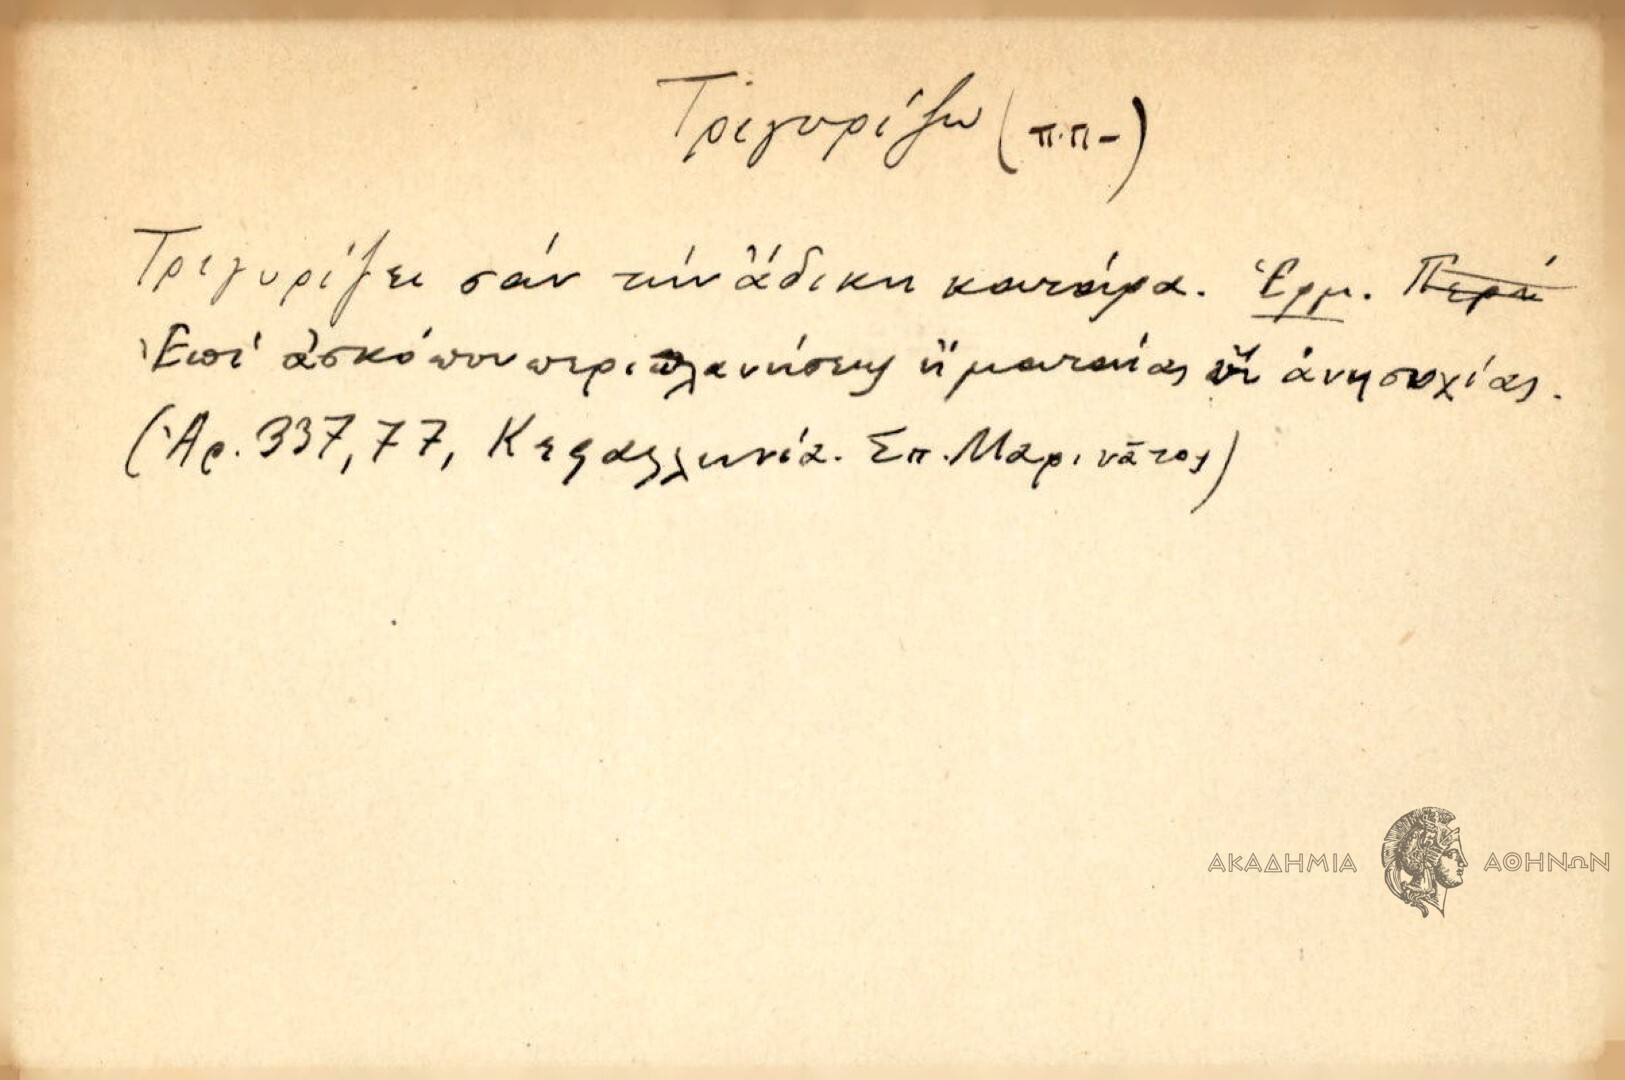 Τριγυρίζω (π.π-)
Τριγυρίζει σάν τήν ἄδικη κατάρα. Ἑρμ. Περί
Ἐπί ἀσκόπου περιπλανήσεως ἤ ματαίας ἀνησυχίας.
(Ἀρ. 337, 77, Κεφαλληνία. Σπ. Μαρινᾶτος)
ΑΚΑΔΗΜΙΑ ΑΘΗΝΩΝ